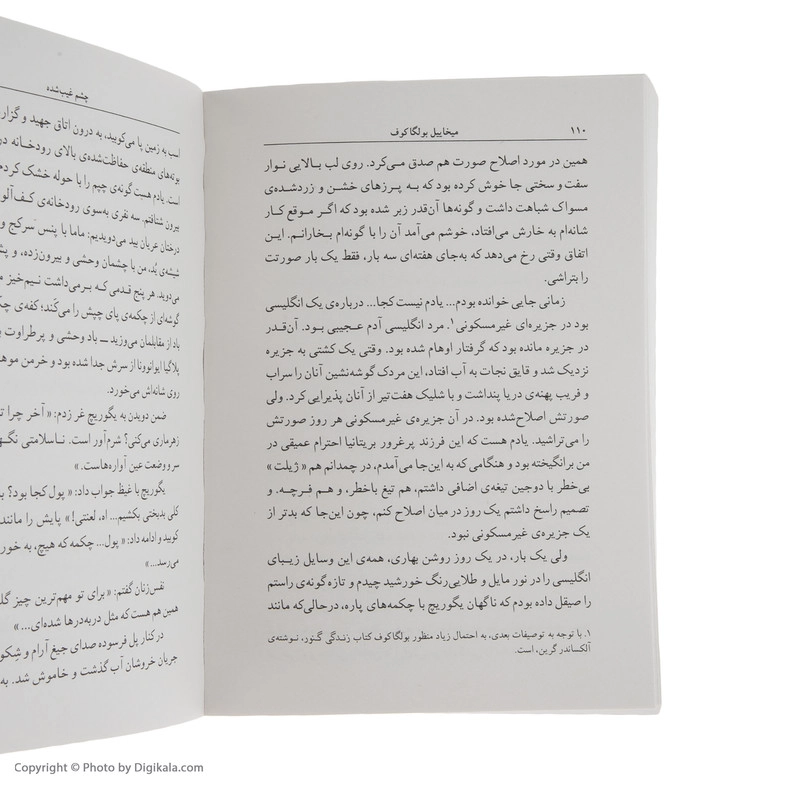 ۱۱۰
میخاییل بولگاکوف
همین در مورد اصلاح صورت هم صدق می‌کرد. روی لب بالایی نوار
سفت و سختی جا خوش کرده بود که به پرزهای خشن و زردشده‌ی
مسواک شباهت داشت و گونه‌ها آن‌قدر زبر شده بود که اگر موقع کار
شانه‌ام به خارش می‌افتاد، خوشم می‌آمد آن را با گونه‌ام بخارانم. این
اتفاق وقتی رخ می‌دهد که به‌جای هفته‌ای سه بار، فقط یک بار صورتت
را بتراشی.
زمانی جایی خوانده بودم... یادم نیست کجا... درباره‌ی یک انگلیسی
بود در جزیره‌ای غیرمسکونی۱. مرد انگلیسی آدم عجیبی بود. آن‌قدر
در جزیره مانده بود که گرفتار اوهام شده بود. وقتی یک کشتی به جزیره
نزدیک شد و قایق نجات به آب افتاد، این مردک گوشه‌نشین آنان را سراب
و فریب پهنه‌ی دریا پنداشت و با شلیک هفت‌تیر از آنان پذیرایی کرد. ولی
صورتش اصلاح‌شده بود. در آن جزیره‌ی غیرمسکونی هر روز صورتش
را می‌تراشید. یادم هست که این فرزند پرغرور بریتانیا احترام عمیقی در
من برانگیخته بود و هنگامی که به این‌جا می‌آمدم، در چمدانم هم « ژیلت »
بی‌خطر با دوجین تیغه‌ی اضافی داشتم، هم تیغ باخطر، و هم فرچه. و
تصمیم راسخ داشتم یک روز در میان اصلاح کنم، چون این‌جا که بدتر از
یک جزیره‌ی غیرمسکونی نبود.
ولی یک بار، در یک روز روشن بهاری، همه‌ی این وسایل زیبای
انگلیسی را در نور مایل و طلایی‌رنگ خورشید چیدم و تازه گونه‌ی راستم
را صیقل داده بودم که ناگهان یگوریچ با چکمه‌های پاره، درحالی‌که مانند
۱. با توجه به توصیفات بعدی، به احتمال زیاد منظور بولگاکوف کتاب زندگی گنور، نوشته‌ی
آلکساندر گرین، است.
چشم غیب‌شده
اسب به زمین پا می‌کوبید، به درون اتاق جهید و گزار
بوته‌های منطقه‌ی حفاظت‌شده‌ی بالای رودخانه در
است. یادم هست گونه‌ی چپم را با حوله خشک کردم
بیرون شتافتم. سه نفری به‌سوی رودخانه‌ی کف‌آلو
درختان عریان بید می‌دویدیم: ماما با پنس سرکج و
شیشه‌ی یُد، من با چشمان وحشی و بیرون‌زده، و
می‌دوید. هر پنج قدمی که برمی‌داشت نیم‌خیز
گوشه‌ای از چکمه‌ی پای چپش را می‌کَند؛ کفه‌ی
باد از مقابلمان می‌وزید ــ باد وحشی و پرطراوت
پلاگیا ایوانوونا از سرش جدا شده بود و خرمن
روی شانه‌اش می‌خورد.
ضمن دویدن به یگوریچ غر زدم: « آخر چرا
زهرماری می‌کنی؟ شرم‌آور است. ناسلامتی
سر و وضعت عین آواره‌هاست. »
یگوریچ با غیظ جواب داد: « پول کجا بود؟
کلی بدبختی بکشیم... اه، لعنتی! » پایش را مانند
کوبید و ادامه داد: « پول... چکمه که هیچ، به خور
می‌رسد... »
نفس‌زنان گفتم: « برای تو مهم‌ترین چیز
همین هم هست که مثل دربه‌درها شده‌ای... »
در کنار پل فرسوده صدای جیغ آرام و
جریان خروشان آب گذشت و خاموش شد. به
Copyright © Photo by Digikala.com